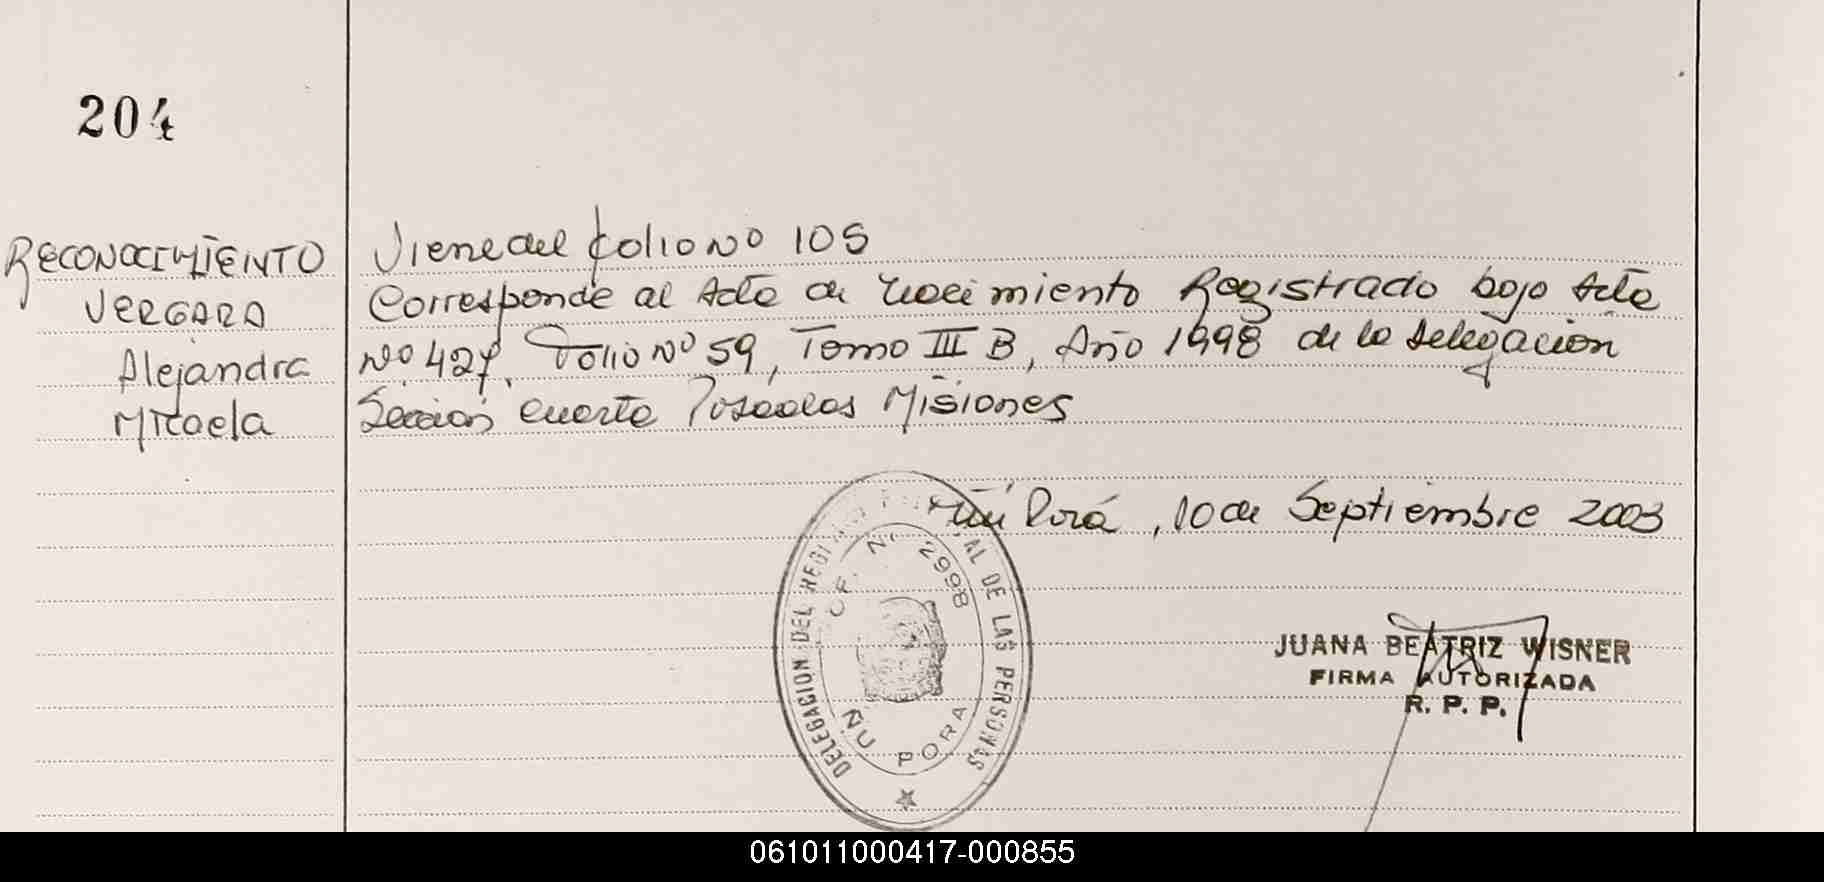 204
RECONOCIMIENTO
VERGARA
Alejandra
Micaela
Viene del folio Nº 105
Corresponde al Acta de Nacimiento Registrado bajo Acta
Nº 427, Folio Nº 59, Tomo III B, Año 1998 de la Delegacion
Sección cuarta Posadas Misiones
Ñu Porá, 10 de Septiembre 2003
DELEGACION DEL REGI AL DE LAS PERSONAS
OF. Nº 2998
ÑU PORA
JUANA BEATRIZ WISNER
FIRMA AUTORIZADA
R. P. P.
061011000417-000855